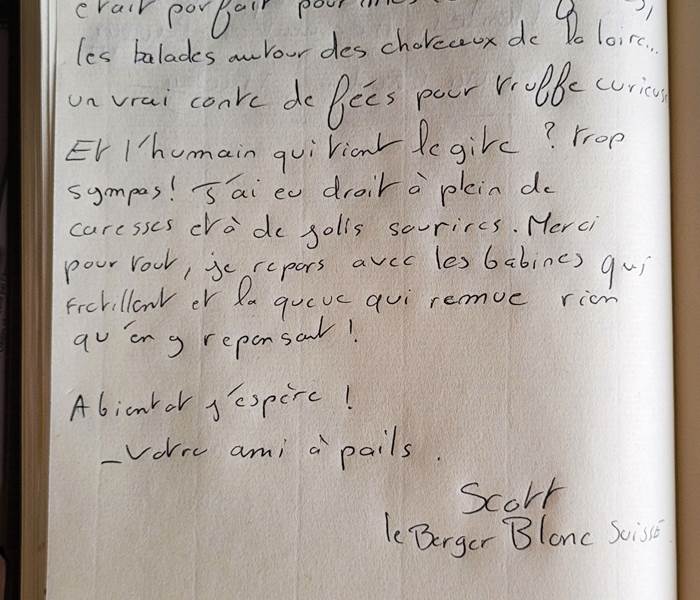 était parfait pour
les balades autour des chateaux de la loire...
un vrai conte de fées pour truffe curieuse
Et l'humain qui tient le gite ? trop
sympas! J'ai eu droit à plein de
caresses et à de jolis sourires. Merci
pour tout, je repars avec les babines qui
frétillent et la queue qui remue rien
qu'en y repensant!
A bientot j'espère !
_ Votre ami à pails.
Scott
le Berger Blanc Suisse